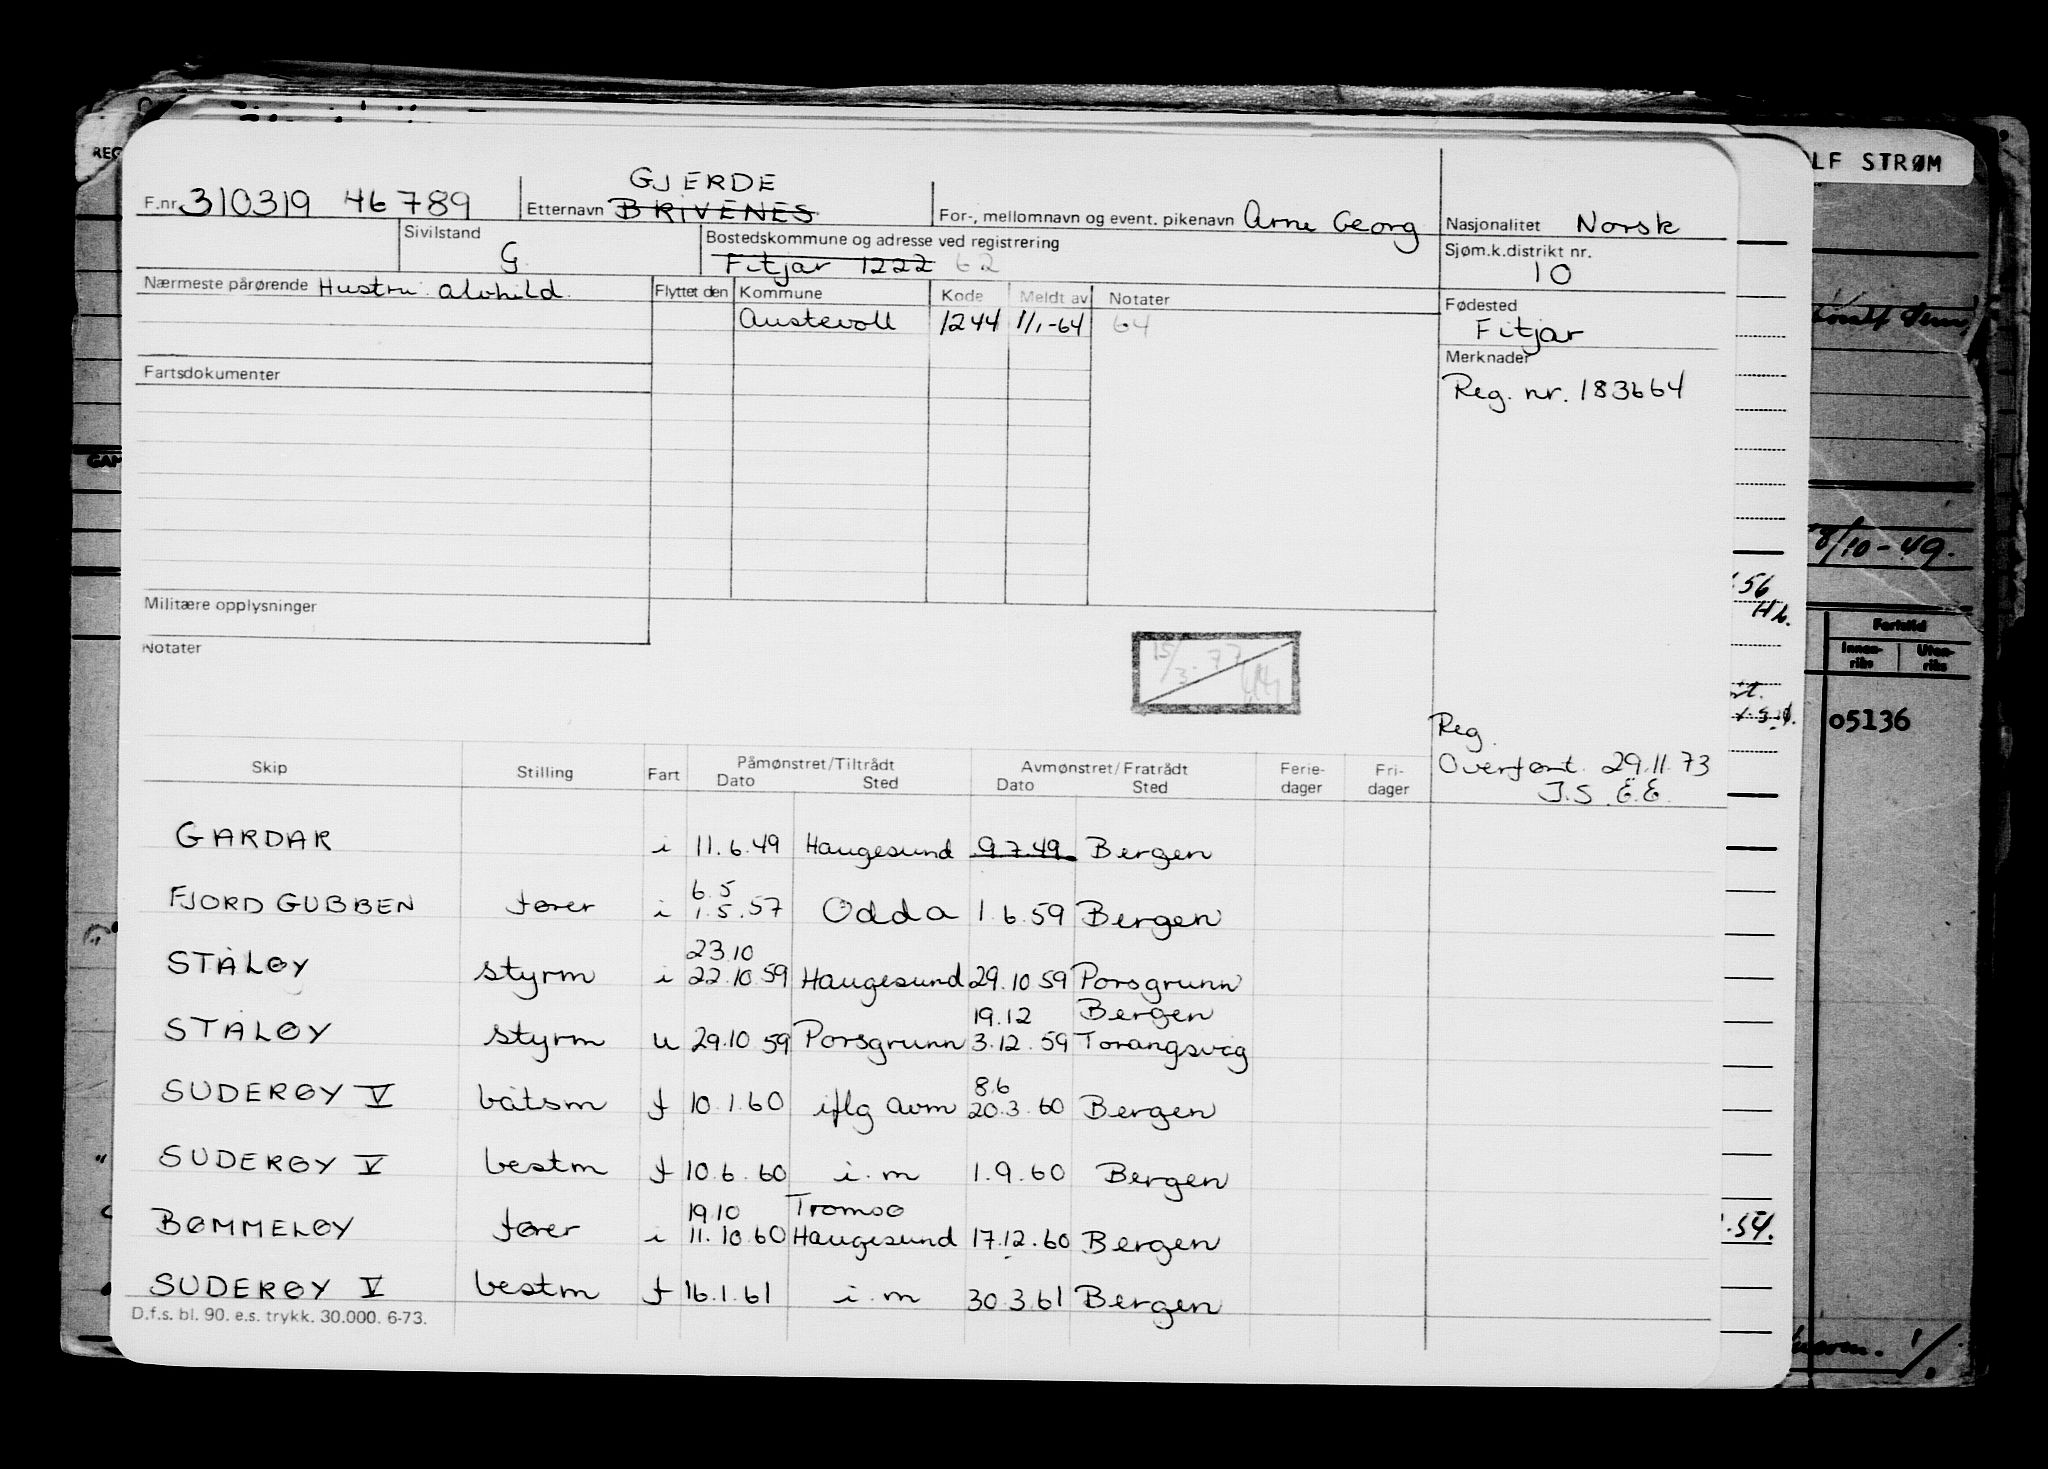 LF STRØM
REG
GJERDE
F.nr. 310319 46789 Etternavn BRIVENES For-, mellomnavn og event. pikenavn Arne Georg Nasjonalitet Norsk
Sivilstand G Bostedskommune og adresse ved registrering Sjøm.k.distrikt nr. 10
Fitjar 1222 62
Nærmeste pårørende Hustru: Alvhild. Flyttet den Kommune Kode Meldt av Notater Fødested
Austevoll 1244 1/1-64 64 Fitjar
Merknader
Fartsdokumenter
Reg. nr. 183664
GAM
8/10-49.
56
Hb.
Militære opplysninger
Notater
15/3-77
Fartstid
Innen-riks Uten-riks
o5136
Reg.
Overført 29.11.73
J.S. E.E.
Skip Stilling Fart Påmønstret/Tiltrådt Avmønstret/Fratrådt Ferie-dager Fri-dager
Dato Sted Dato Sted
GARDAR i 11.6.49 Haugesund 9.7.49 Bergen
6.5
FJORD GUBBEN fører i 1.5.57 Odda 1.6.59 Bergen
23.10
STÅLØY styrm i 22.10.59 Haugesund 29.10 59 Porsgrunn
19.12 Bergen
STÅLØY styrm u 29.10 59 Porsgrunn 3.12.59 Torangsvåg
8.6
SUDERØY V båtsm f 10.1.60 iflg avm 20.3.60 Bergen
SUDERØY V bestm f 10.6.60 i.m 1.9.60 Bergen
19.10 Tromsø
BØMMELØY fører i 11.10.60 Haugesund 17.12.60 Bergen
.54.
SUDERØY V bestm f 16.1.61 i.m 30.3.61 Bergen
D.f.s. bl. 90. e.s. trykk. 30.000. 6-73.